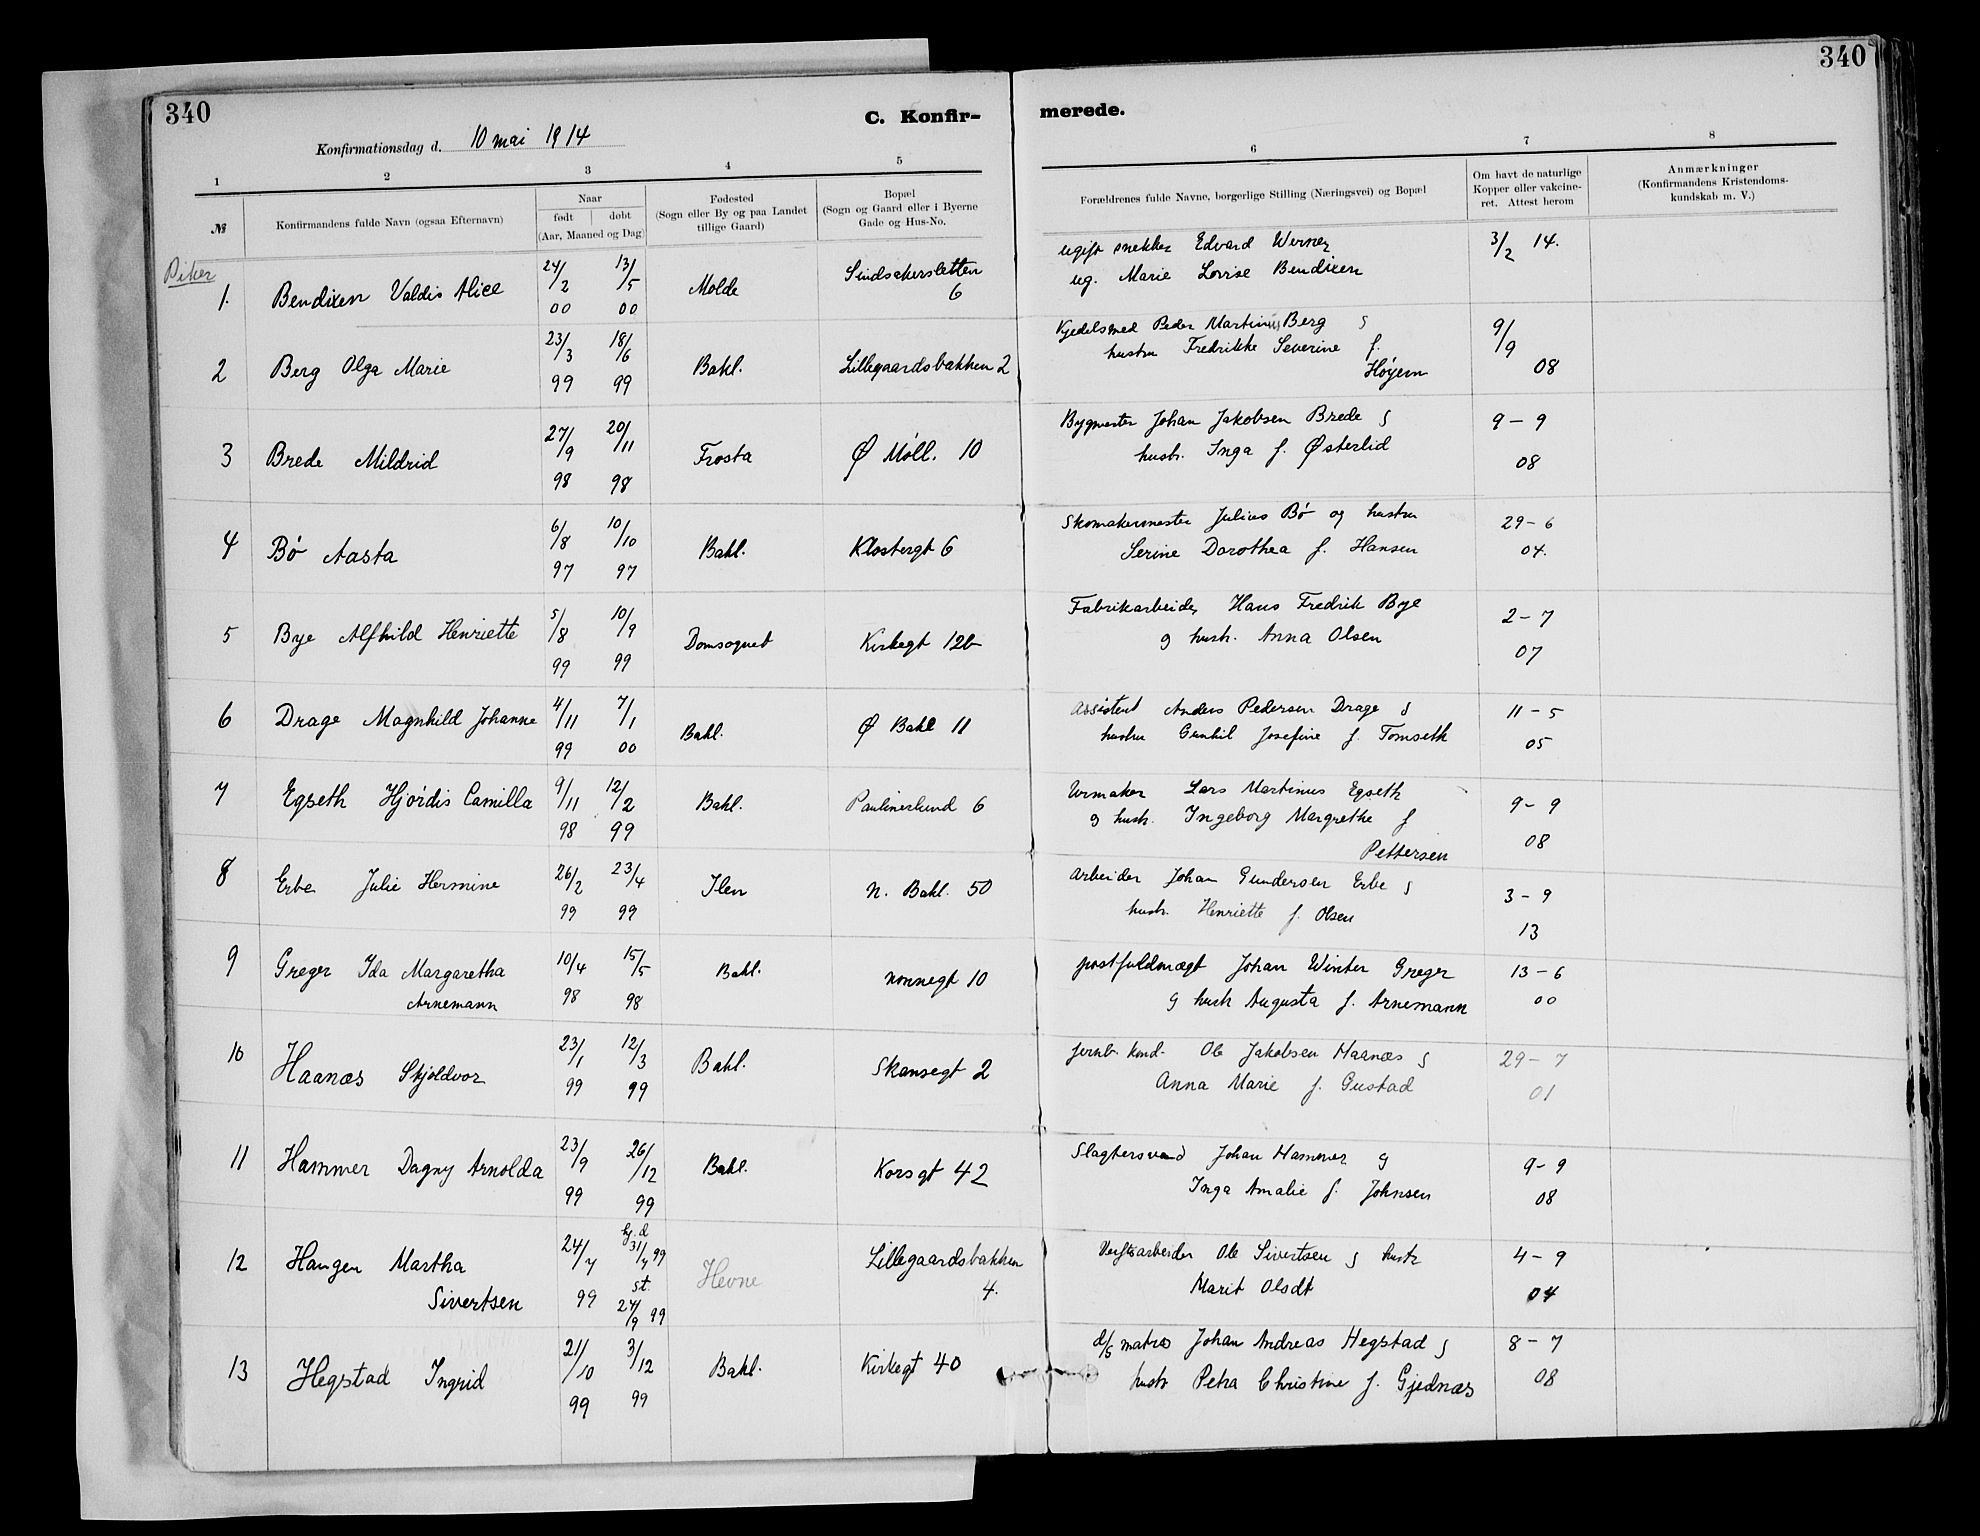 340
340
C. Konfir-
merede.
Konfirmationsdag d. 10 mai 1914
1
2
3
4
5
6
7
8
№
Konfirmandens fulde Navn (ogsaa Efternavn)
Naar
født
døbt
(Aar, Maaned og Dag)
Fødested
(Sogn eller By og paa Landet
tillige Gaard)
Bopæl
(Sogn og Gaard eller i Byerne
Gade og Hus-No.
Forældrenes fulde Navne, borgerlige Stilling (Næringsvei) og Bopæl
Om havt de naturlige
Kopper eller vakcine-
ret. Attest herom
Anmærkninger
(Konfirmandens Kristendoms-
kundskab m. V.)
Piker
1. Bendixen Valdis Alice 24/2 00 13/5 00 Molde Sindsakersletten 6
ugift snekker Edvard Werner 3/2 14.
ug. Marie Lovise Bendixen
2 Berg Olga Marie 23/3 99 18/6 99 Bakl. Lillegaardsbakken 2
Kjedelsmed Peder Martinius Berg 9/9
hustru Fredrikke Severine f.
Høyem 08
3 Brede Mildrid 27/9 98 20/11 98 Frosta Ø Møll. 10
Bygmester Johan Jakobsen Brede g 9 - 9
hustr. Inga f. Østerlid 08
4 Bø Aasta 6/8 97 10/10 97 Bakl. Klostergt 6
Skomakermester Julius Bø og hustru 29 - 6
Serine Dorothea f. Hansen 04.
5 Bye Alfhild Henriette 5/8 99 10/9 99 Domsognet Kirkegt 12b
Fabrikarbeider Hans Fredrik Bye 2 - 7
g hustr. Anna Olsen 07
6 Drage Magnhild Johanne 4/11 99 7/1 00 Bakl. Ø Bakl 11
Assistent Anders Pedersen Drage g 11 - 5
hustru Gunhil Josefine f. Tomseth 05
7 Egseth Hjørdis Camilla 9/11 98 12/2 99 Bakl. Paulinerlund 6
Urmaker Lars Martinus Egseth 9 - 9
g hustr. Ingeborg Margrethe f
Pettersen 08
8 Erbe Julie Hermine 26/2 99 23/4 99 Ilen N. Bakl. 50
Arbeider Johan Gundersen Erbe g 3 - 9
hustr. Henriette f. Olsen 13
9 Greger Ida Margaretha 10/4 98 15/5 98 Bakl. Nonnegt 10
Arnemann
postfuldmægt Johan Winter Greger 13 - 6
g hustr Augusta f. Arnemann 00
10 Haanæs Skjoldvor 23/1 99 12/3 99 Bakl. Skansegt 2
jernb. kond. Ole Jakobsen Haanæs g 29 - 7
Anna Marie f. Gustad 01
11 Hammer Dagny Arnolda 23/9 99 26/12 99 Bakl. Korsgt 42
Slagtersvend Johan Hammer g 9 - 9
Inga Amalie f. Johnsen 08
12 Haugen Martha 24/7 99 hj.d 31/7 99 st. 24/9 99 Hevne Lillegaardsbakken 4.
Sivertsen
Verftsarbeider Ole Sivertsen g hustr 4 - 9
Marit Olsdt 04
13 Hegstad Ingrid 21/10 99 3/12 99 Bakl. Kirkegt 40
d/s matros Johan Andreas Hegstad g 8 - 7
hustr Petra Christine f. Gjednæs 08